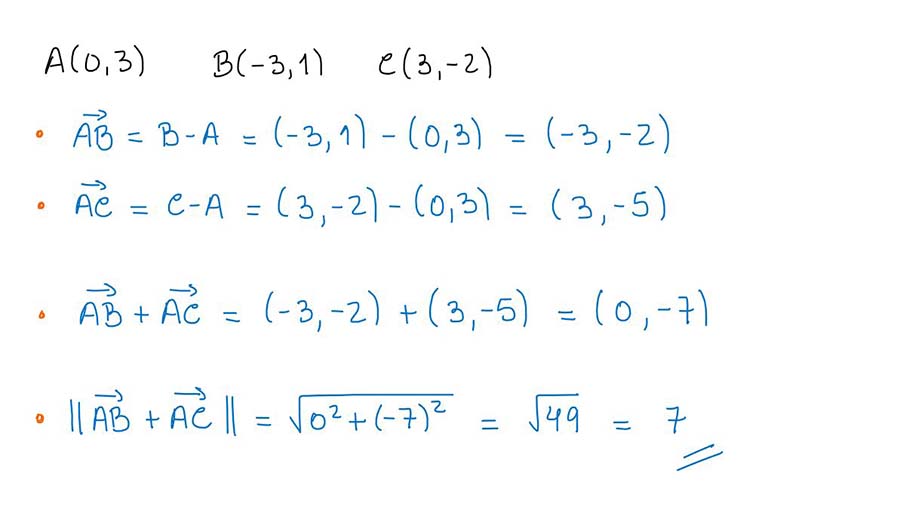 A(0,3) B(-3,1) C(3,-2)
• \overrightarrow{AB} = B-A = (-3,1) - (0,3) = (-3,-2)
• \overrightarrow{AC} = C-A = (3,-2) - (0,3) = (3,-5)
• \overrightarrow{AB} + \overrightarrow{AC} = (-3,-2) + (3,-5) = (0,-7)
• ||\overrightarrow{AB} + \overrightarrow{AC}|| = √(0² + (-7)²) = √49 = 7